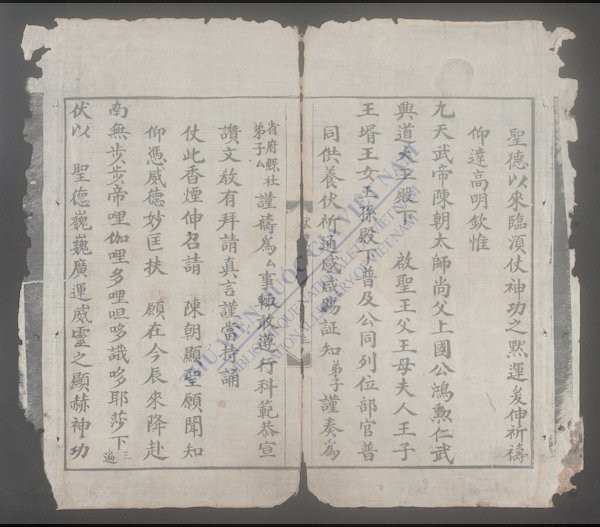 聖德以來臨湏仗神功之默運爰伸祈禱
仰達高明欽惟
九天武帝陳朝太師尚父上國公鴻勲仁武
興道大王殿下　啟聖王父王母夫人王子
王壻王女王孫殿下普及公同列位部官普
同供養伏祈通感咸賜証知弟子謹奏為
省府縣社弟子厶謹禱為厶事輙敢遵行科範恭宣
讚文敘有拜請真言謹當持誦
仗此香煙伸召請　陳朝顯聖願聞知
仰憑威德妙匡扶　願在今辰來降赴
南無步步帝哩伽哩多哩呾哆誐哆耶莎下三遍
伏以　聖德巍巍廣運威靈之顯赫神功
THƯ VIỆN QUỐC GIA VIỆT NAM
BIBLIOTHEQUE NATIONALE DU VIETNAM
NATIONAL LIBRARY OF VIETNAM